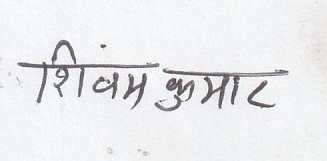 शिवंम कुमार